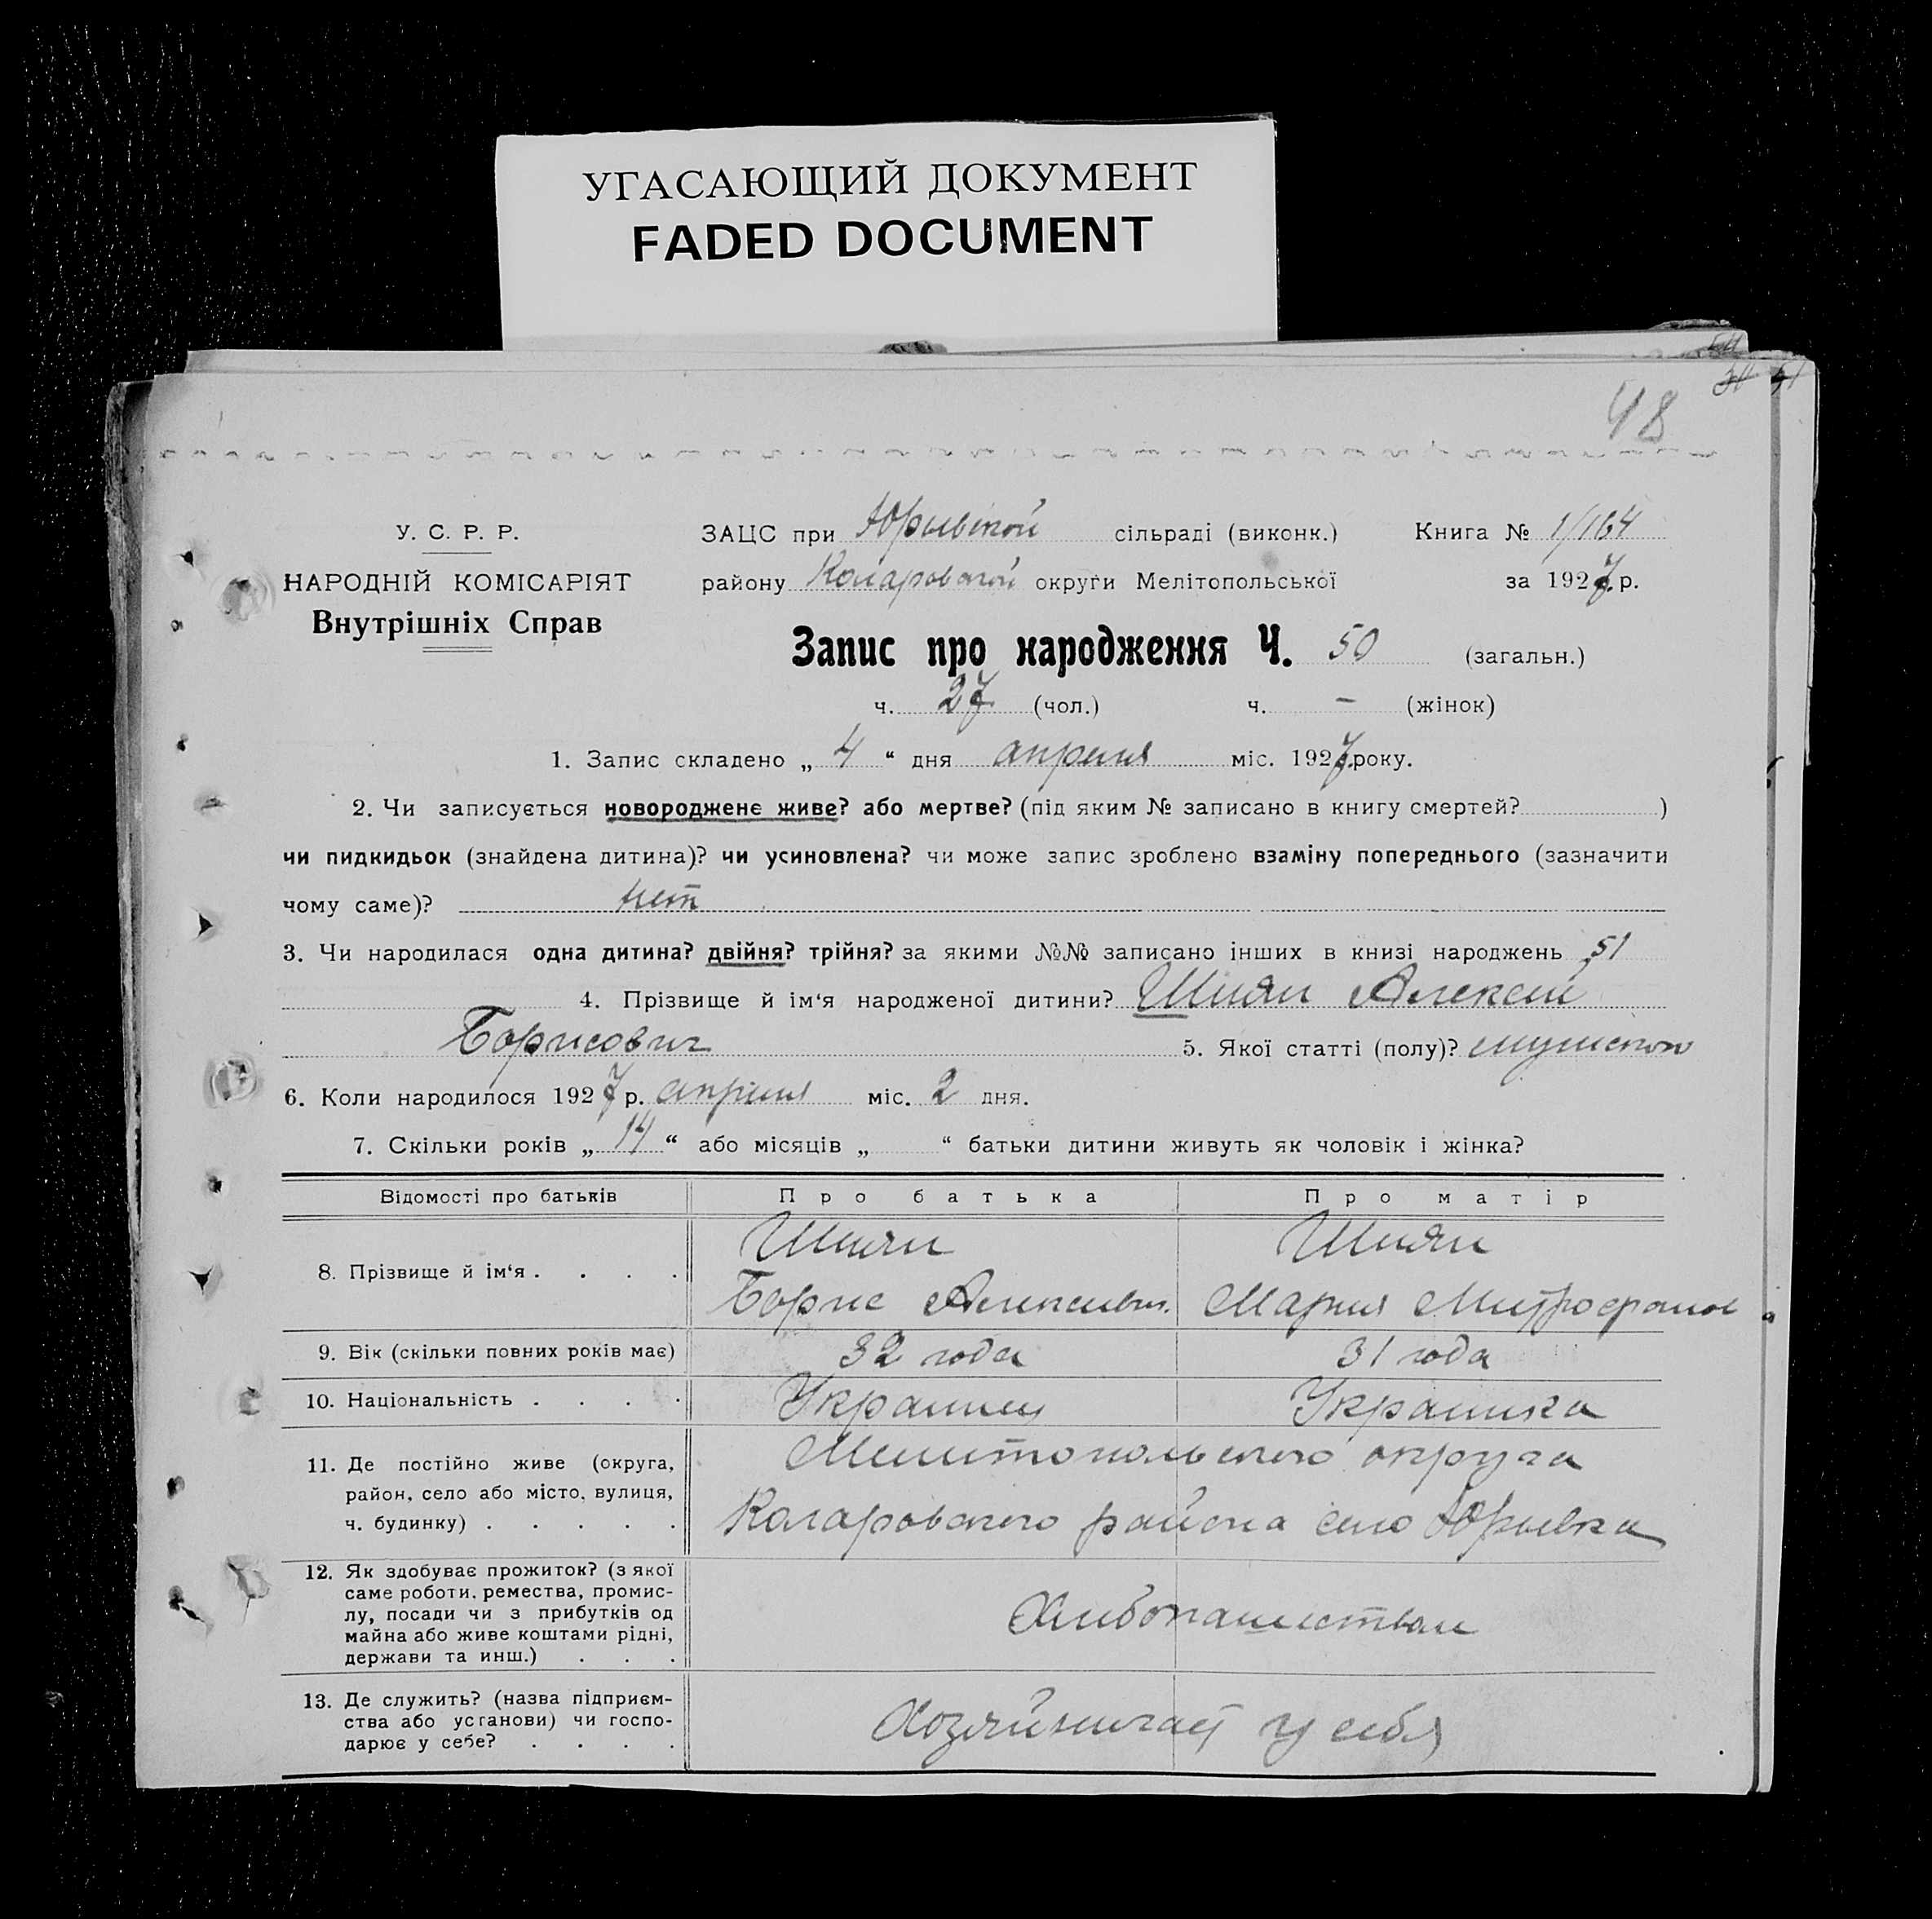 УГАСАЮЩИЙ ДОКУМЕНТ
FADED DOCUMENT
48
У. С. Р. Р.
НАРОДНІЙ КОМІСАРІЯТ
Внутрішніх Справ
ЗАЦС при Юрьевской сільраді (виконк.) Книга № 1/164
району Коларовской округи Мелітопольської за 1927 р.
Запис про народження Ч. 50 (загальн.)
ч. 27 (чол.) ч. – (жінок)
1. Запис складено „ 4 “ дня апреля міс. 1927 року.
2. Чи записується новороджене живе? або мертве? (під яким № записано в книгу смертей? )
чи пидкидьок (знайдена дитина)? чи усиновлена? чи може запис зроблено взаміну попереднього (зазначити
чому саме)? нет
3. Чи народилася одна дитина? двійня? трійня? за якими №№ записано інших в книзі народжень 51
4. Прізвище й ім‘я народженої дитини? Шиян Алексей
Борисович 5. Якої статті (полу)?
6. Коли народилося 1927 р. апреля міс. 2 дня.
7. Скільки років „ 14 “ або місяців „ “ батьки дитини живуть як чоловік і жінка?
Відомості про батьків Про батька Про матір
8. Прізвище й ім‘я . . . . Шиян Шиян
Борис Алексеевич. Мария Митрофанов
9. Вік (скільки повних років має) 32 года 31 года
10. Національність . . . . Украинец Украинка
11. Де постійно живе (округа, район, село або місто, вулиця, ч. будинку) . . . . . Мелитопольского округа
Коларовского района село Юрьевка
12. Як здобуває прожиток? (з якої
саме роботи, ремества, промис-
лу, посади чи з прибутків од
майна або живе коштами рідні,
держави та инш.) . . . Хлебопашеством
13. Де служить? (назва підприєм-
ства або установи) чи госпо-
дарює у себе? . . . . Хозяйничает у себя